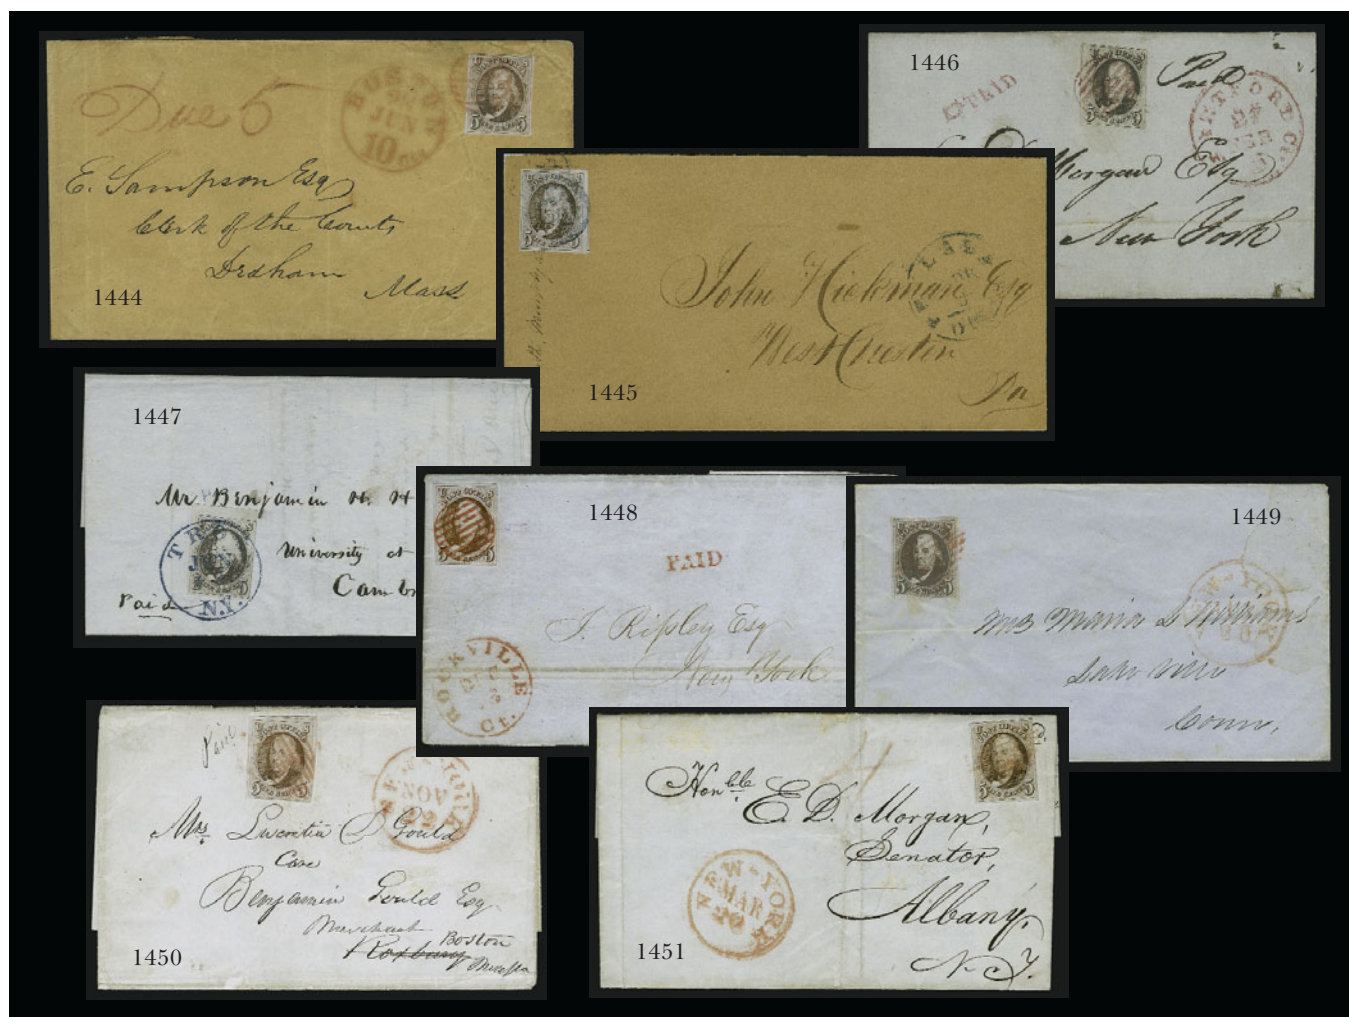 Due 5
BOSTON
JUN
10 cts
E. Sampson Esq
Clerk of the Courts
Dedham
Mass
1444
1446
PAID
Paid
HARTFORD Ct.
Morgan Esq
New York
POST OFFICE
5 5
John Hickman Esq
West Chester
Pa
PHILADA
1445
1447
Mr. Benjamin
University at
Camb
Paid
TROY
JUN
N.Y.
1448
PAID
J. Ripley Esq
New York
ROCKVILLE
Ct.
1449
NEW-YORK
Mrs Maria L Williams
Conn.
Paid
NEW-YORK
NOV
22
Mrs. Lucretia D Gould
Care
Benjamin Gould Esq
Merchant
Boston
Roxbury
1450
Honble.
E. D. Morgan,
Senator,
Albany,
N. Y.
NEW-YORK
MAR
20
1451